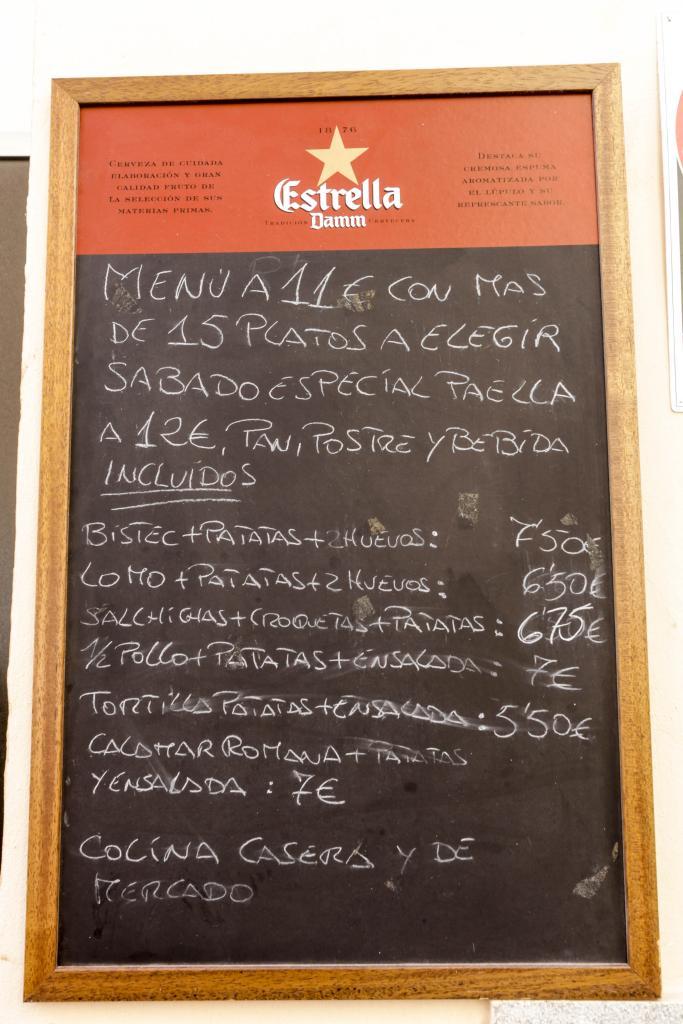 1876
CERVEZA DE CUIDADA
ELABORACIÓN Y GRAN
CALIDAD FRUTO DE
LA SELECCIÓN DE SUS
MATERIAS PRIMAS.
Estrella
Damm
TRADICIÓN CERVECERA
DESTACA SU
CREMOSA ESPUMA
AROMATIZADA POR
EL LÚPULO Y SU
REFRESCANTE SABOR.
MENÚ A 11€ CON MAS
DE 15 PLATOS A ELEGIR
SABADO ESPECIAL PAELLA
A 12€, PAN, POSTRE Y BEBIDA
INCLUIDOS
BISTEC + PATATAS + 2 HUEVOS: 7'50€
LOMO + PATATAS + 2 HUEVOS: 6'50€
SALCHICHAS + CROQUETAS + PATATAS: 6'75€
1/2 POLLO + PATATAS + ENSALADA: 7€
TORTILLA PATATAS + ENSALADA: 5'50€
CALAMAR ROMANA + PATATAS
Y ENSALADA: 7€
COCINA CASERA Y DE
MERCADO